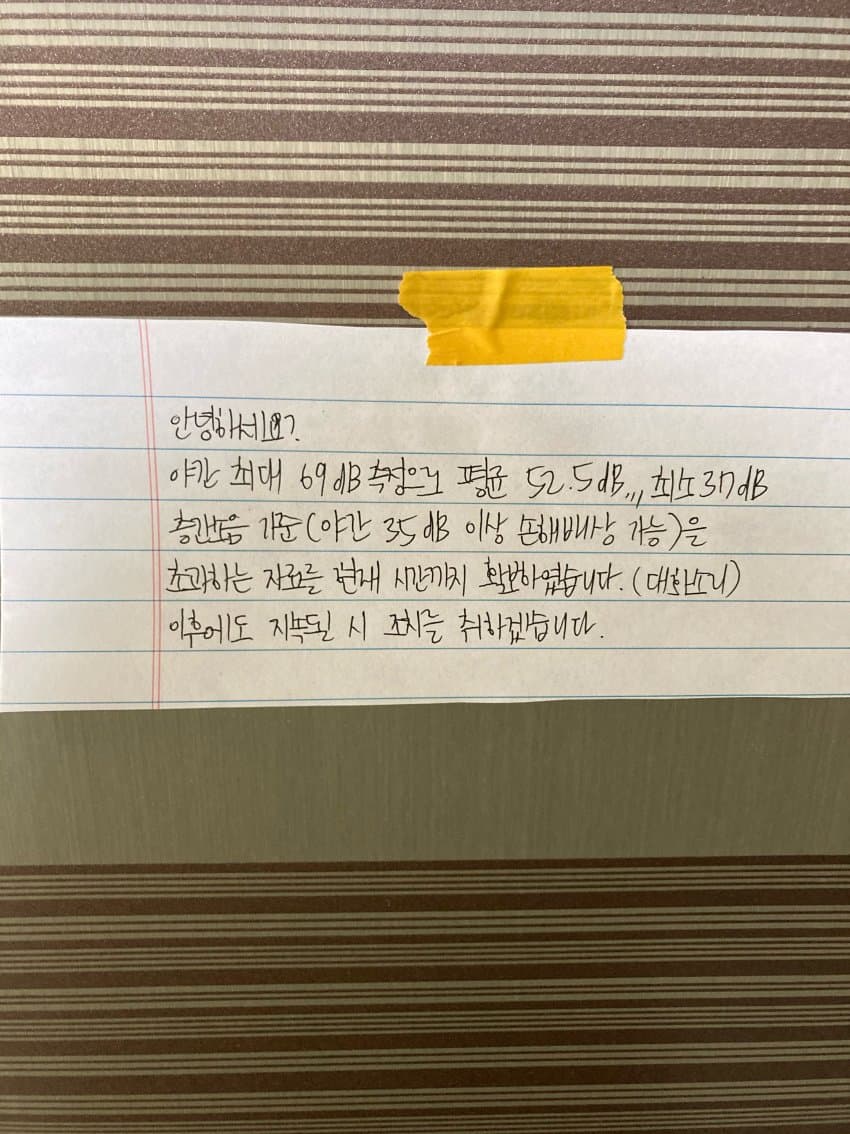 안녕하세요?
야간 최대 69dB 측정으로 평균 52.5dB,,, 최소 37dB
층간소음 기준(야간 35dB 이상 손해배상 가능)을
초과하는 자료를 현재 시간까지 확보하였습니다. (대화소리)
이후에도 지속될 시 조치를 취하겠습니다.